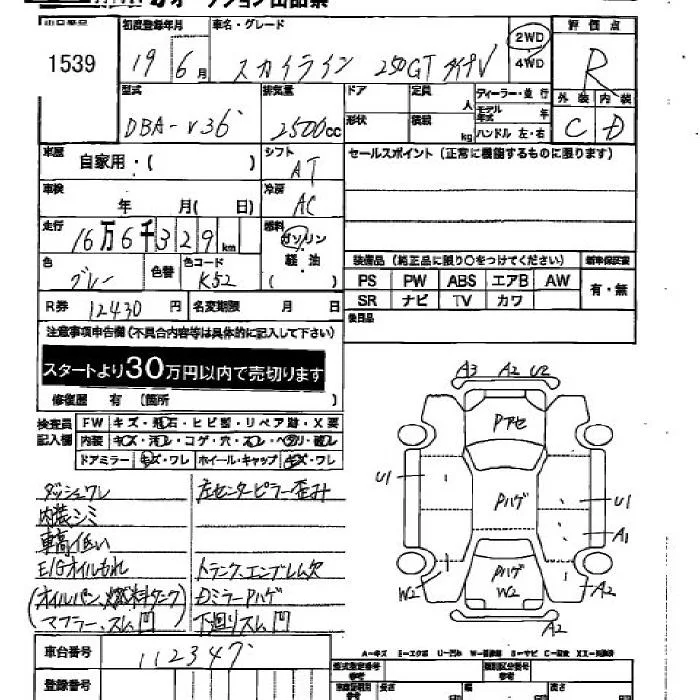 1539
初度登録年月
車名・グレード
19年6月
スカイライン 250GT タイプV
2WD
4WD
評価点
R
外装 内装
C D
型式
DBA-V36
排気量
2500cc
ドア
定員
人
形状
積載
kg
ディーラー・並行
モデル年式 年
ハンドル 左・右
車歴
自家用・( )
シフト
AT
セールスポイント(正常に機能するものに限ります)
車検
年 月( 日)
冷房
AC
走行
16万6千329km
燃料
ガソリン
軽・油
( )
色
グレー
色替
色コード
K52
装備品(純正品に限り○をつけてください)
新車保証書
PS PW ABS エアB AW
SR ナビ TV カワ
有・無
R券 12430円
名変期限 月 日
後日品
注意事項申告欄(不具合内容等は具体的に記入して下さい)
スタートより30万円以内で売切ります
修復歴 有 (箇所 )
検査員記入欄
FW キズ・飛石・ヒビ割・リペア跡・X要
内装 キズ・汚レ・コゲ・穴・スレ・ヘタリ・破レ
ドアミラー キズ・ワレ ホイール・キャップ キズ・ワレ
ダッシュワレ
左センターピラー歪み
内装シミ
車高低い
E/Gオイルもれ
トランクエンブレム欠
(オイルパン、燃料タンク)
Dミラー Pハゲ
マフラー、スム凹
下廻りスム凹
A3 A2 U2
Pアセ
U1
Pハゲ
U1
A1
Pハゲ
W2
W2
A2
A2
A=キズ E=エクボ U=凹み W=補修跡 S=サビ C=腐食 XX=交換済
車台番号
112347
登録番号
型式指定番号
参考
類別区分番号
参考
長さ
幅
高さ